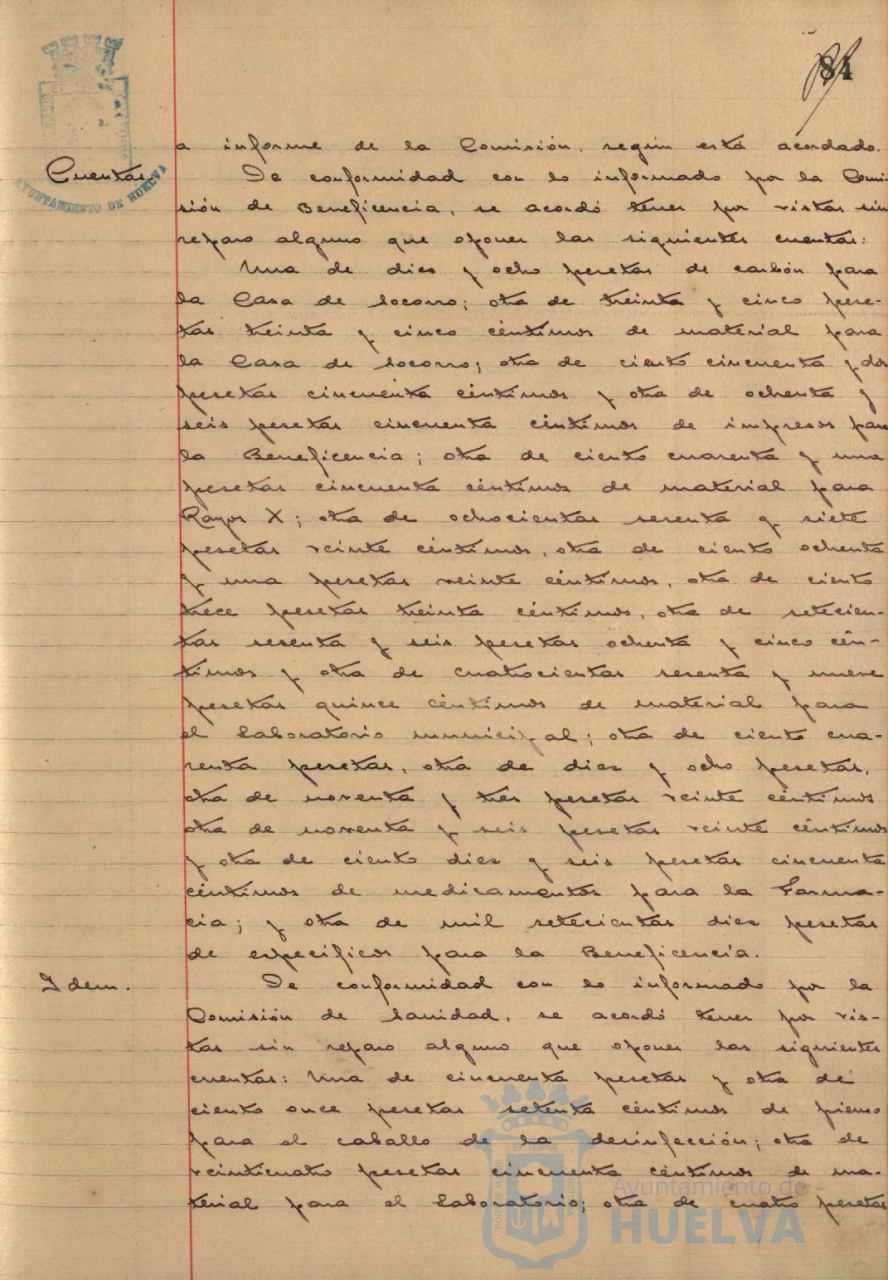 84
a informe de la Comisión, según está acordado.
Cuentas.
AYUNTAMIENTO DE HUELVA
De conformidad con lo informado por la Comi-
sión de Beneficencia, se acordó tener por vistas sin
reparo alguno que oponer las siguientes cuentas:
Una de diez y ocho pesetas de carbón para
la Casa de Socorro; otra de treinta y cinco pese-
tas treinta y cinco céntimos de material para
la Casa de Socorro; otra de ciento cincuenta y dos
pesetas cincuenta céntimos y otra de ochenta y
seis pesetas cincuenta céntimos de impresos para
la Beneficencia; otra de ciento cuarenta y una
pesetas cincuenta céntimos de material para
Rayos X; otra de ochocientas sesenta y siete
pesetas veinte céntimos, otra de ciento ochenta
y una pesetas veinte céntimos, otra de ciento
trece pesetas treinta céntimos, otra de setecien-
tas sesenta y seis pesetas ochenta y cinco cén-
timos y otra de cuatrocientas sesenta y nueve
pesetas quince céntimos de material para
el Laboratorio municipal; otra de ciento cua-
renta pesetas, otra de diez y ocho pesetas,
otra de noventa y tres pesetas veinte céntimos
otra de noventa y seis pesetas veinte céntimos
y otra de ciento diez y seis pesetas cincuenta
céntimos de medicamentos para la Farma-
cia; y otra de mil setecientas diez pesetas
de específicos para la Beneficencia.
Idem.
De conformidad con lo informado por la
Comisión de Sanidad, se acordó tener por vis-
tas sin reparo alguno que oponer las siguientes
cuentas: Una de cincuenta pesetas y otra de
ciento once pesetas setenta céntimos de pienso
para el caballo de la desinfección; otra de
veinticuatro pesetas cincuenta céntimos de ma-
terial para el Laboratorio; otra de cuatro pesetas
Ayuntamiento de
HUELVA